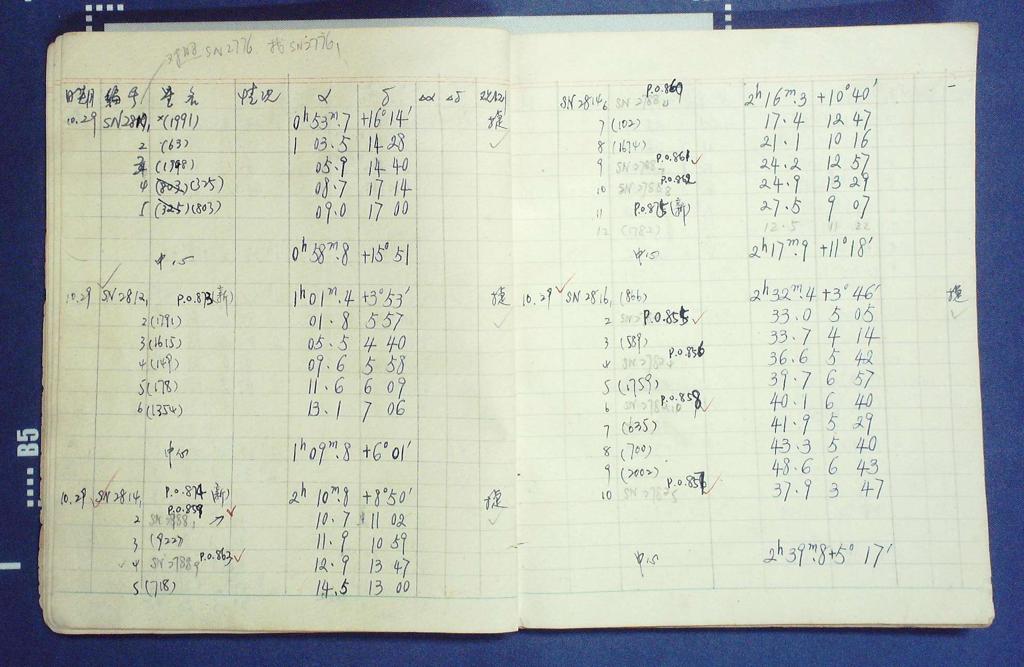 SN2776 SN2776,
日期 编号 星名 情况 α δ Δα Δδ
10.29 *(1991) 0ʰ53ᵐ.7 +16°14′ 捷
2 (63) 1 03.5 14 28
3 (1748) 05.9 14 40
4 (803)(325) 08.7 17 14
5 (325)(803) 09.0 17 00
中心 0ʰ58ᵐ.8 +15°51
10.29 SN2812, P.O.873(新) 1ʰ01ᵐ.4 +3°53′ 捷
2 (1791) 01.8 5 57
3 (1615) 05.5 4 40
4 (149) 09.6 5 58
5 (178) 11.6 6 09
6 (1354) 13.1 7 06
中心 1ʰ09ᵐ.8 +6°01′
10.29 SN2814, P.O.874(新) 2ʰ10ᵐ.8 +8°50′ 捷
P.O.859
2 10.7 11 02
3 (922) 11.9 10 59
4 SN2788 P.O.863 12.9 13 47
5 (718) 14.5 13 00
SN2814₆ P.O.860 2ʰ16ᵐ.3 +10°40′
7 (102) 17.4 12 47
8 (1674) 21.1 10 16
9 SN2788 P.O.861 24.2 12 57
10 SN2788 P.O.862 24.9 13 29
11 P.O.875(新) 27.5 9 07
12 (1782) 12.5 11 22
中心 2ʰ17ᵐ.9 +11°18′
10.29 SN2816, (866) 2ʰ32ᵐ.4 +3°46′ 捷
2 P.O.855 33.0 5 05
3 (589) 33.7 4 14
4 P.O.856 36.6 5 42
5 (1759) 39.7 6 57
6 P.O.858 40.1 6 40
7 (635) 41.9 5 29
8 (700) 43.3 5 40
9 (2002) 48.6 6 43
10 P.O.857 37.9 3 47
中心 2ʰ39ᵐ.8 +5°17′
B5